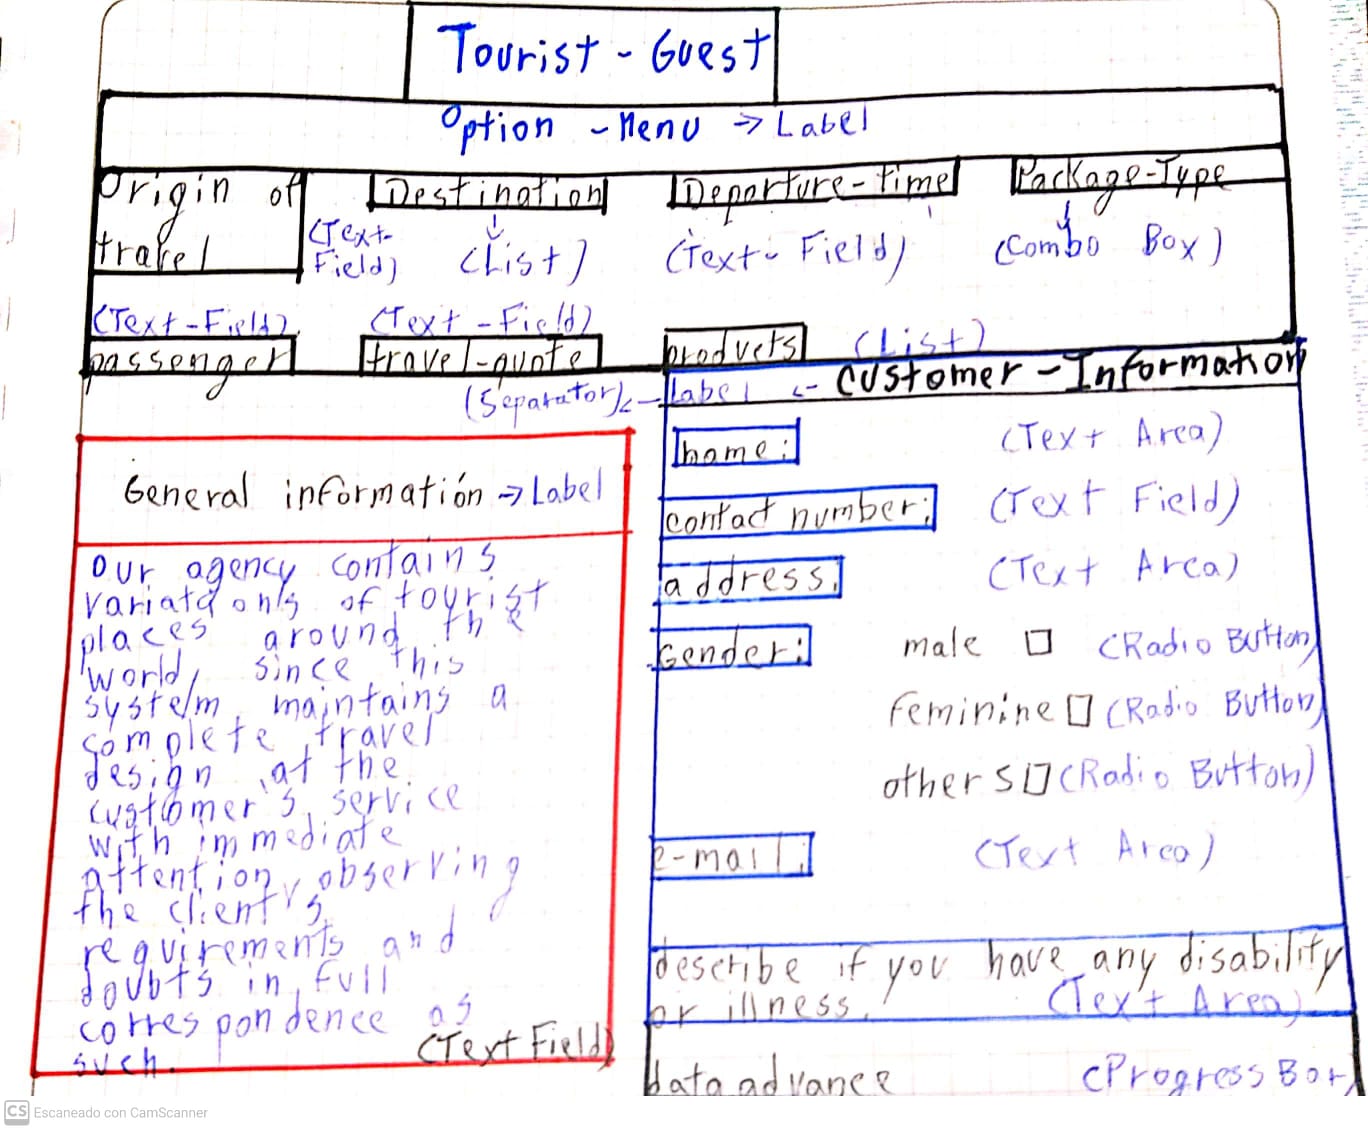 Tourist - Guest
Option - Menu → Label
Origin of travel
(Text-Field)
Destination
(List)
Departure-time
(Text-Field)
Package-Type
(Combo Box)
(Text-Field)
passenger
(Text-Field)
travel-quote
products
(List)
(Separator) ← Label ← Customer-Information
General informatión → Label
Our agency contains
places around the
world, since this
system maintains a
complete travel
design at the
customer's service
with immediate
attention, observing
the client's
requirements and
doubts in full
correspondence as
such.
(Text Field)
home:
(Text Area)
contact number:
(Text Field)
address.
(Text Area)
Gender:
male (Radio Button)
Feminine (Radio Button)
others (Radio Button)
e-mail:
(Text Area)
describe if you have any disability
or illness.
(Text Area)
data advance
(Progress Bar)
CS Escaneado con CamScanner